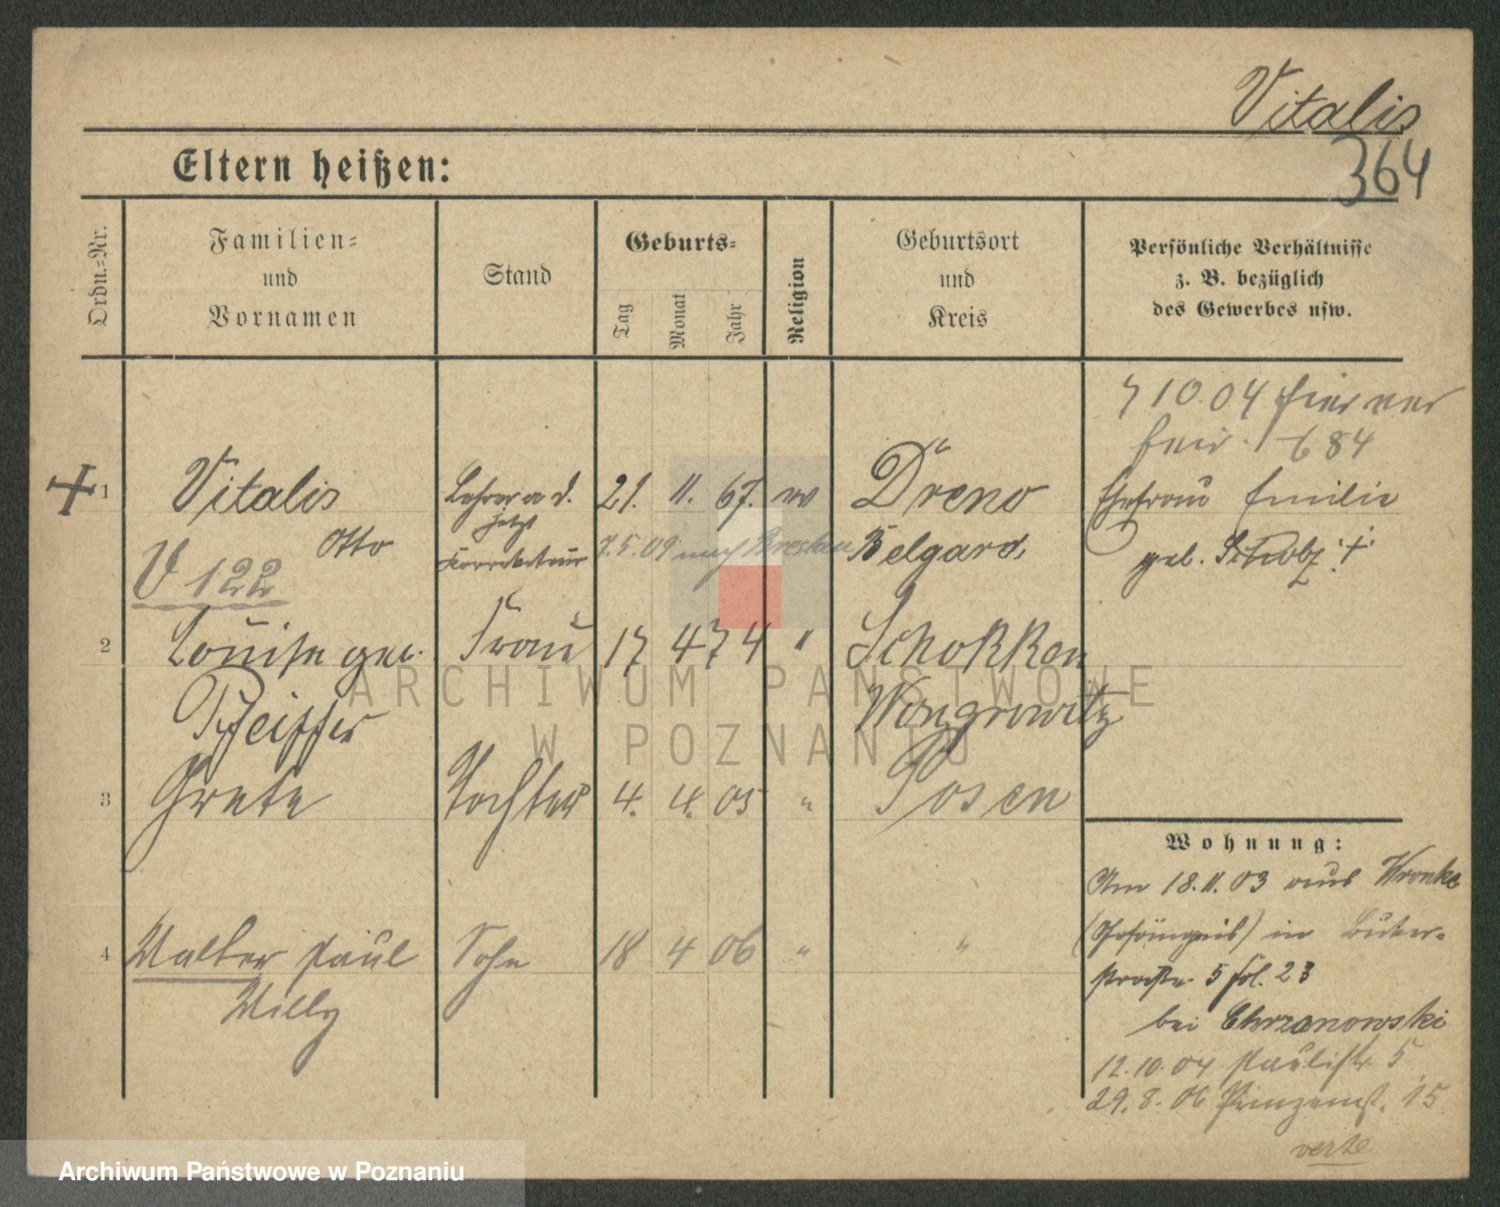 Vitalis
364
Eltern heißen:
Ordn.-Nr.
Familien-
und
Vornamen
Stand
Geburts-
Tag
Monat
Jahr
Religion
Geburtsort
und
Kreis
Persönliche Verhältnisse
z. B. bezüglich
des Gewerbes usw.
7 10.04 hier ver
heir. 684
Ehefrau Emilie
geb. Scholz +
1 Vitalis Lehrer a. d. 21. 11. 67. ev Dreno
Otto jetzt
Korrekteur 7.5.09 nach Breslau Belgard,
V 122
2 Louise geb. Frau 17 4 74 " Schokken
Pfeiffer Wongrowitz
3 Grete Tochter 4. 4. 05 " Posen
4 Walter Paul Sohn 18 4 06 " "
Willy
Wohnung:
Am 18.11.03 aus Wronke
(Gefängnis) in Buker-
straße 5 fol. 23
bei Chrzanowski
12.10.04 Paulistr. 5
29.8.06 Prinzenst. 15
verte
ARCHIWUM PAŃSTWOWE
W POZNANIU
Archiwum Państwowe w Poznaniu